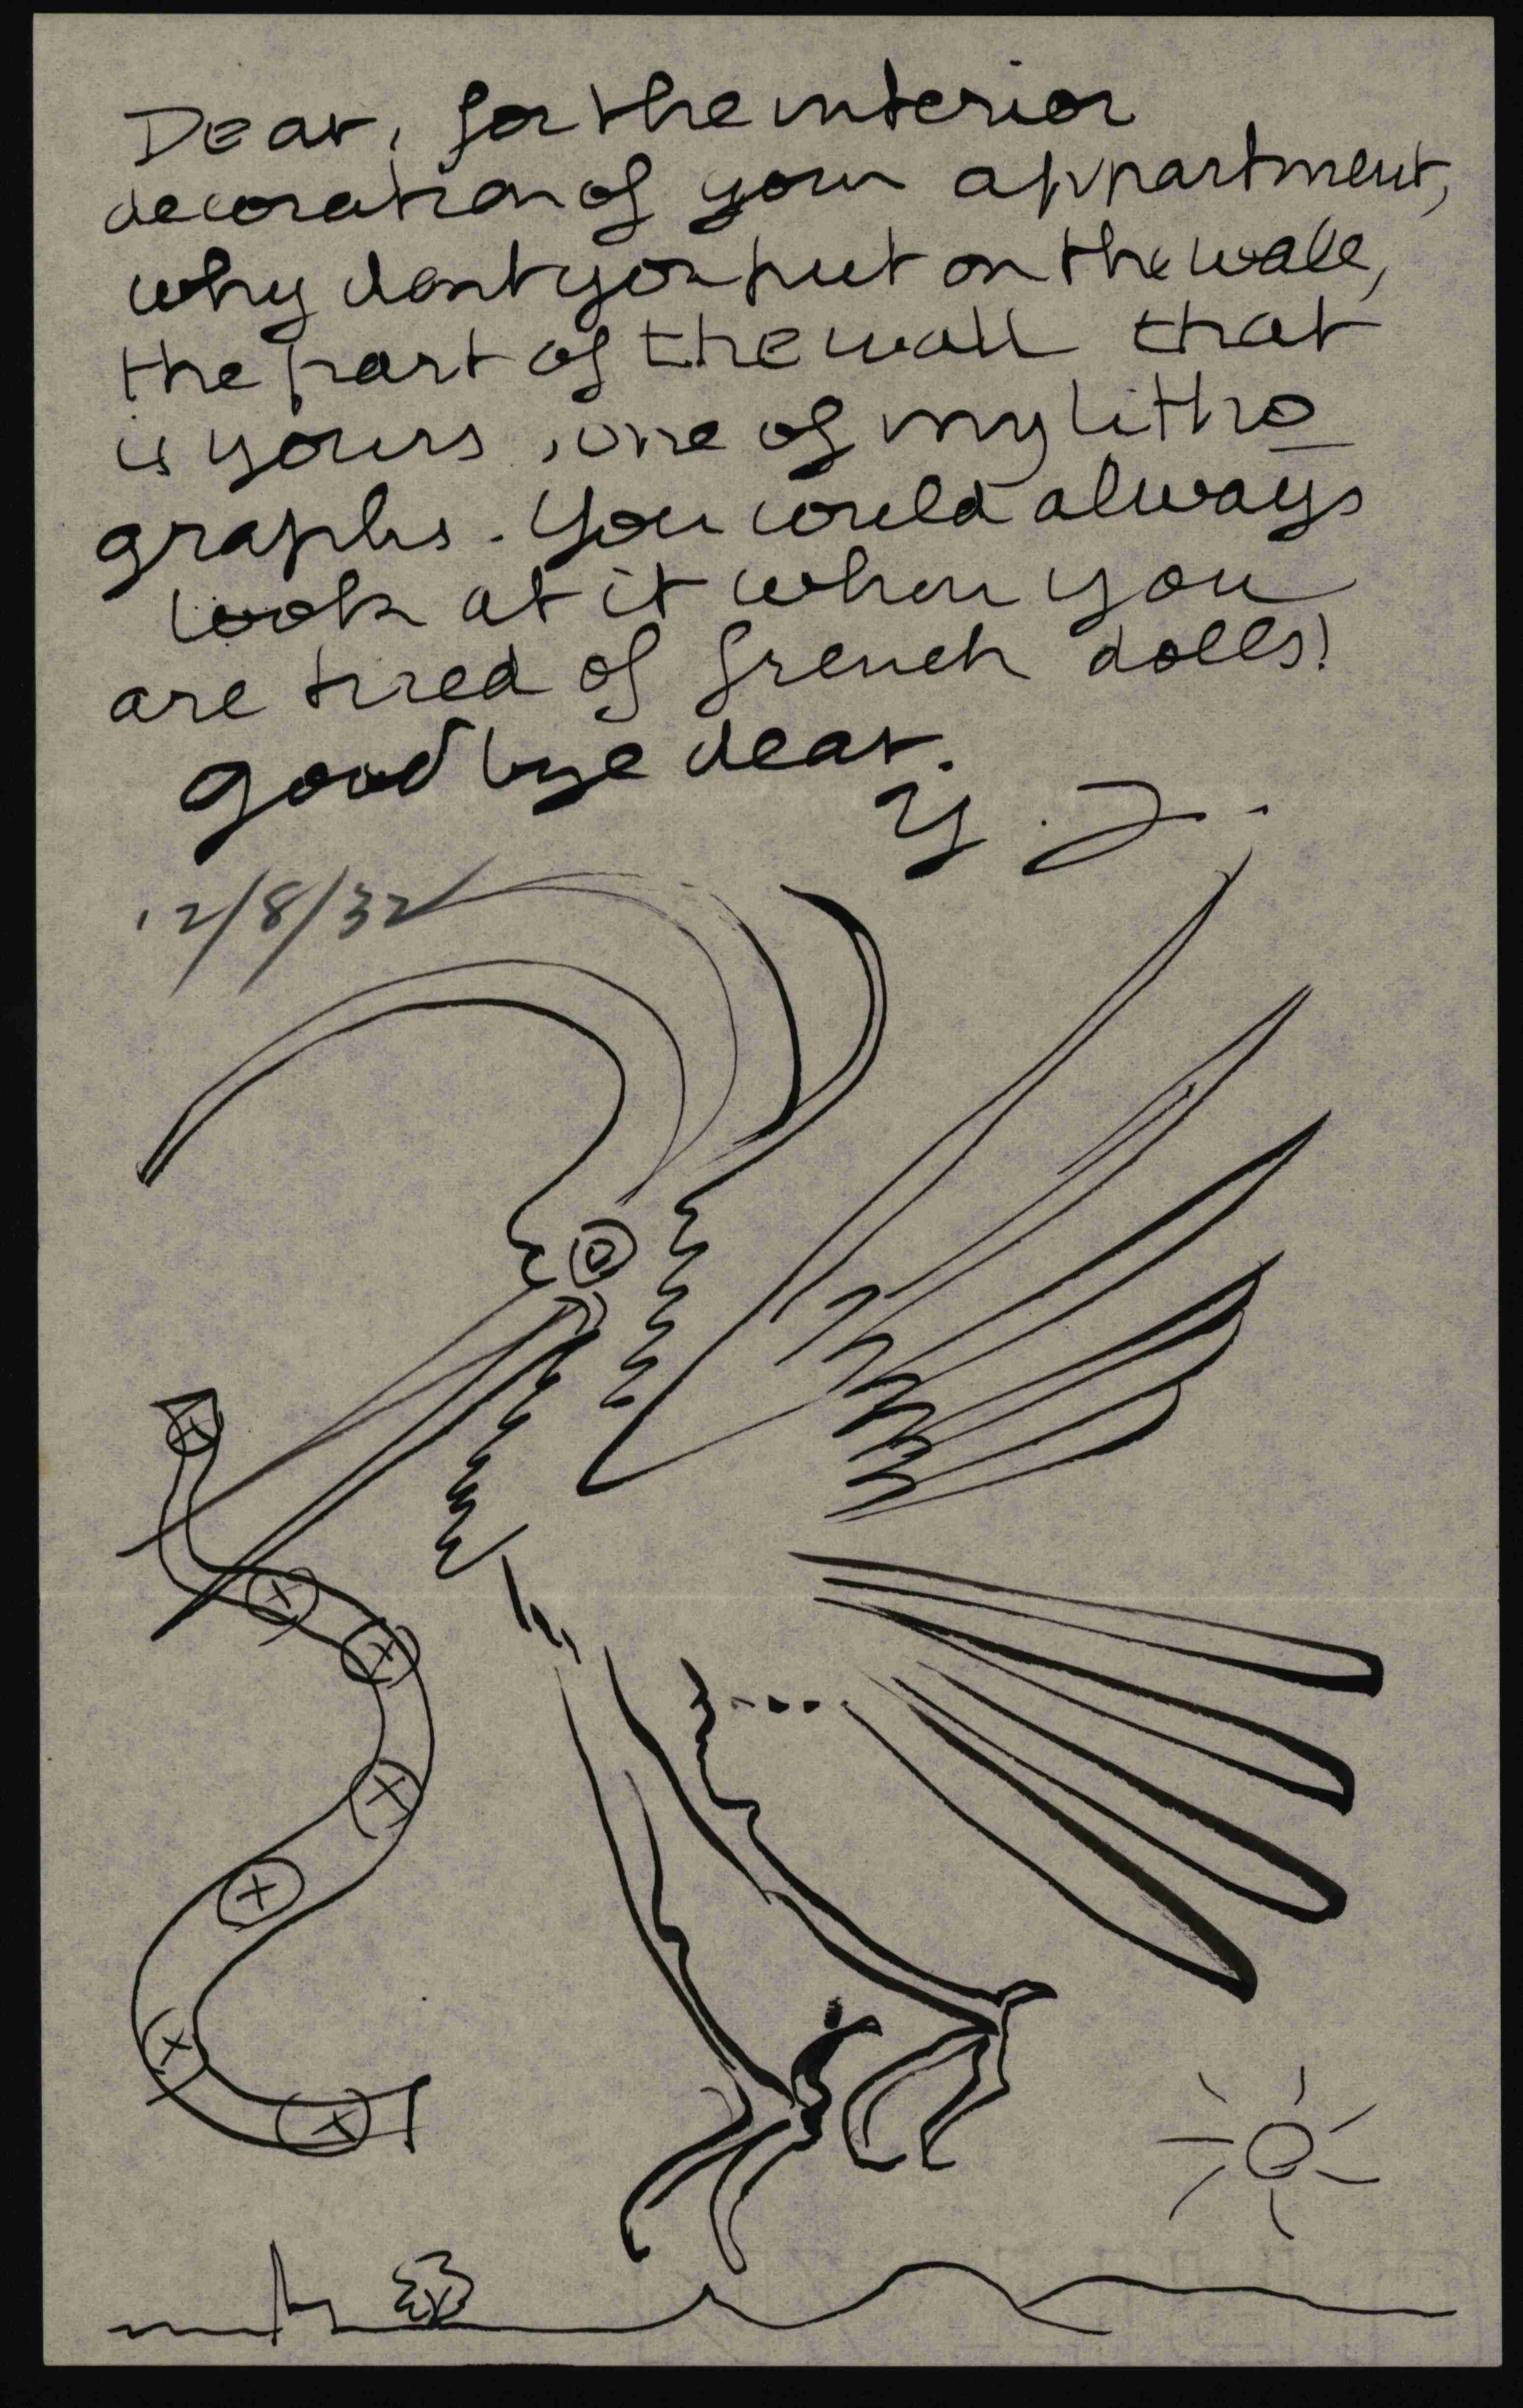 Dear, for the interior
decoration of your appartment,
why dont you put on the wall,
the part of the wall that
is yours, one of my litho
graphs. You could always
look at it when you
are tired of french dolls!
good bye dear.
12/8/32